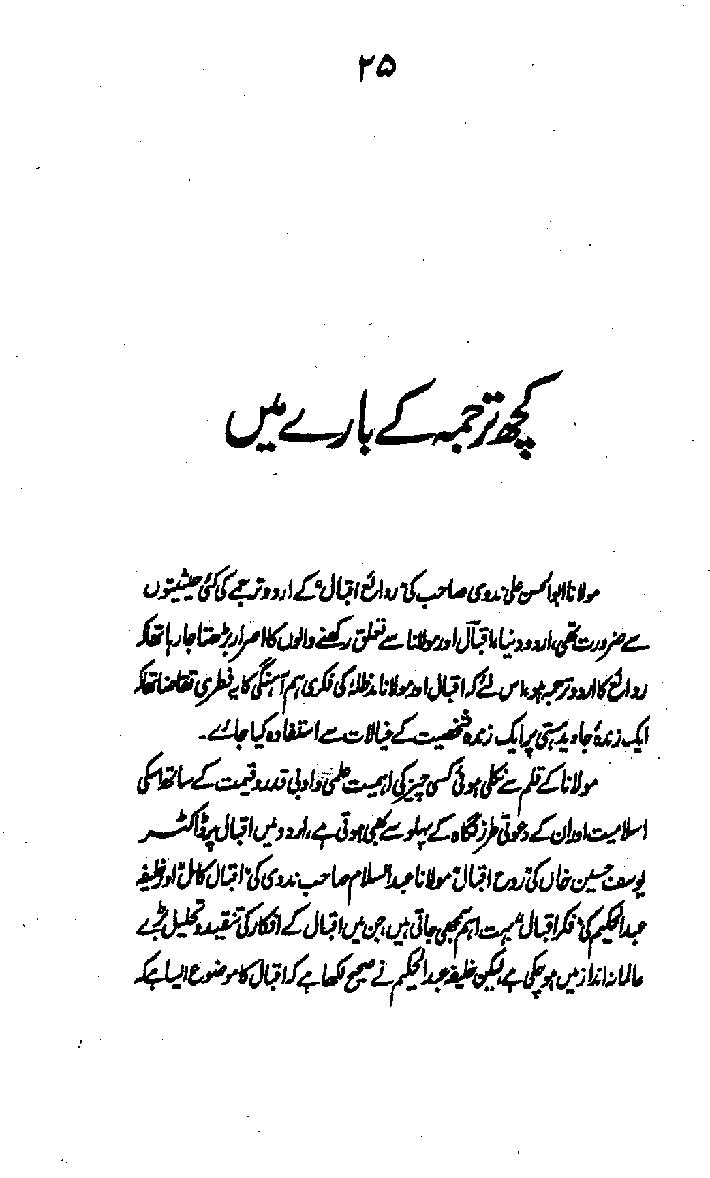 ۲۵
کچھ ترجمہ کے بارے میں
مولانا ابوالحسن علی ندوی صاحب کی "روائع اقبال" کے اردو ترجمے کی کئی حیثیتوں
سے ضرورت تھی، اردو دنیا، اقبالؔ اور مولانا سے تعلق رکھنے والوں کا اصرار بڑھتا جا رہا تھا کہ
روائع کا اردو ترجمہ ہو، اس لئے کہ اقبال اور مولانا مدظلہٗ کی فکری ہم آہنگی کا یہ فطری تقاضا تھا کہ
ایک زندۂ جاوید ہستی پر ایک زندہ شخصیت کے خیالات سے استفادہ کیا جائے۔
مولانا کے قلم سے نکلی ہوئی کسی چیز کی اہمیت علمی و ادبی قدر و قیمت کے ساتھ اسکی
اسلامیت اور ان کے دعوتی طرز نگاہ کے پہلو سے بھی ہوتی ہے، اردو میں اقبال پر ڈاکٹر
یوسف حسین خاں کی "روح اقبال" مولانا عبدالسلام صاحب ندوی کی "اقبال کامل" اور خلیفہ
عبدالحکیم کی "فکر اقبال" بہت اہم سمجھی جاتی ہیں، جن میں اقبال کے افکار کی تنقید و تحلیل بڑے
عالمانہ انداز میں ہو چکی ہے، لیکن خلیفہ عبدالحکیم نے صحیح لکھا ہے کہ اقبال کا موضوع ایسا ہے کہ